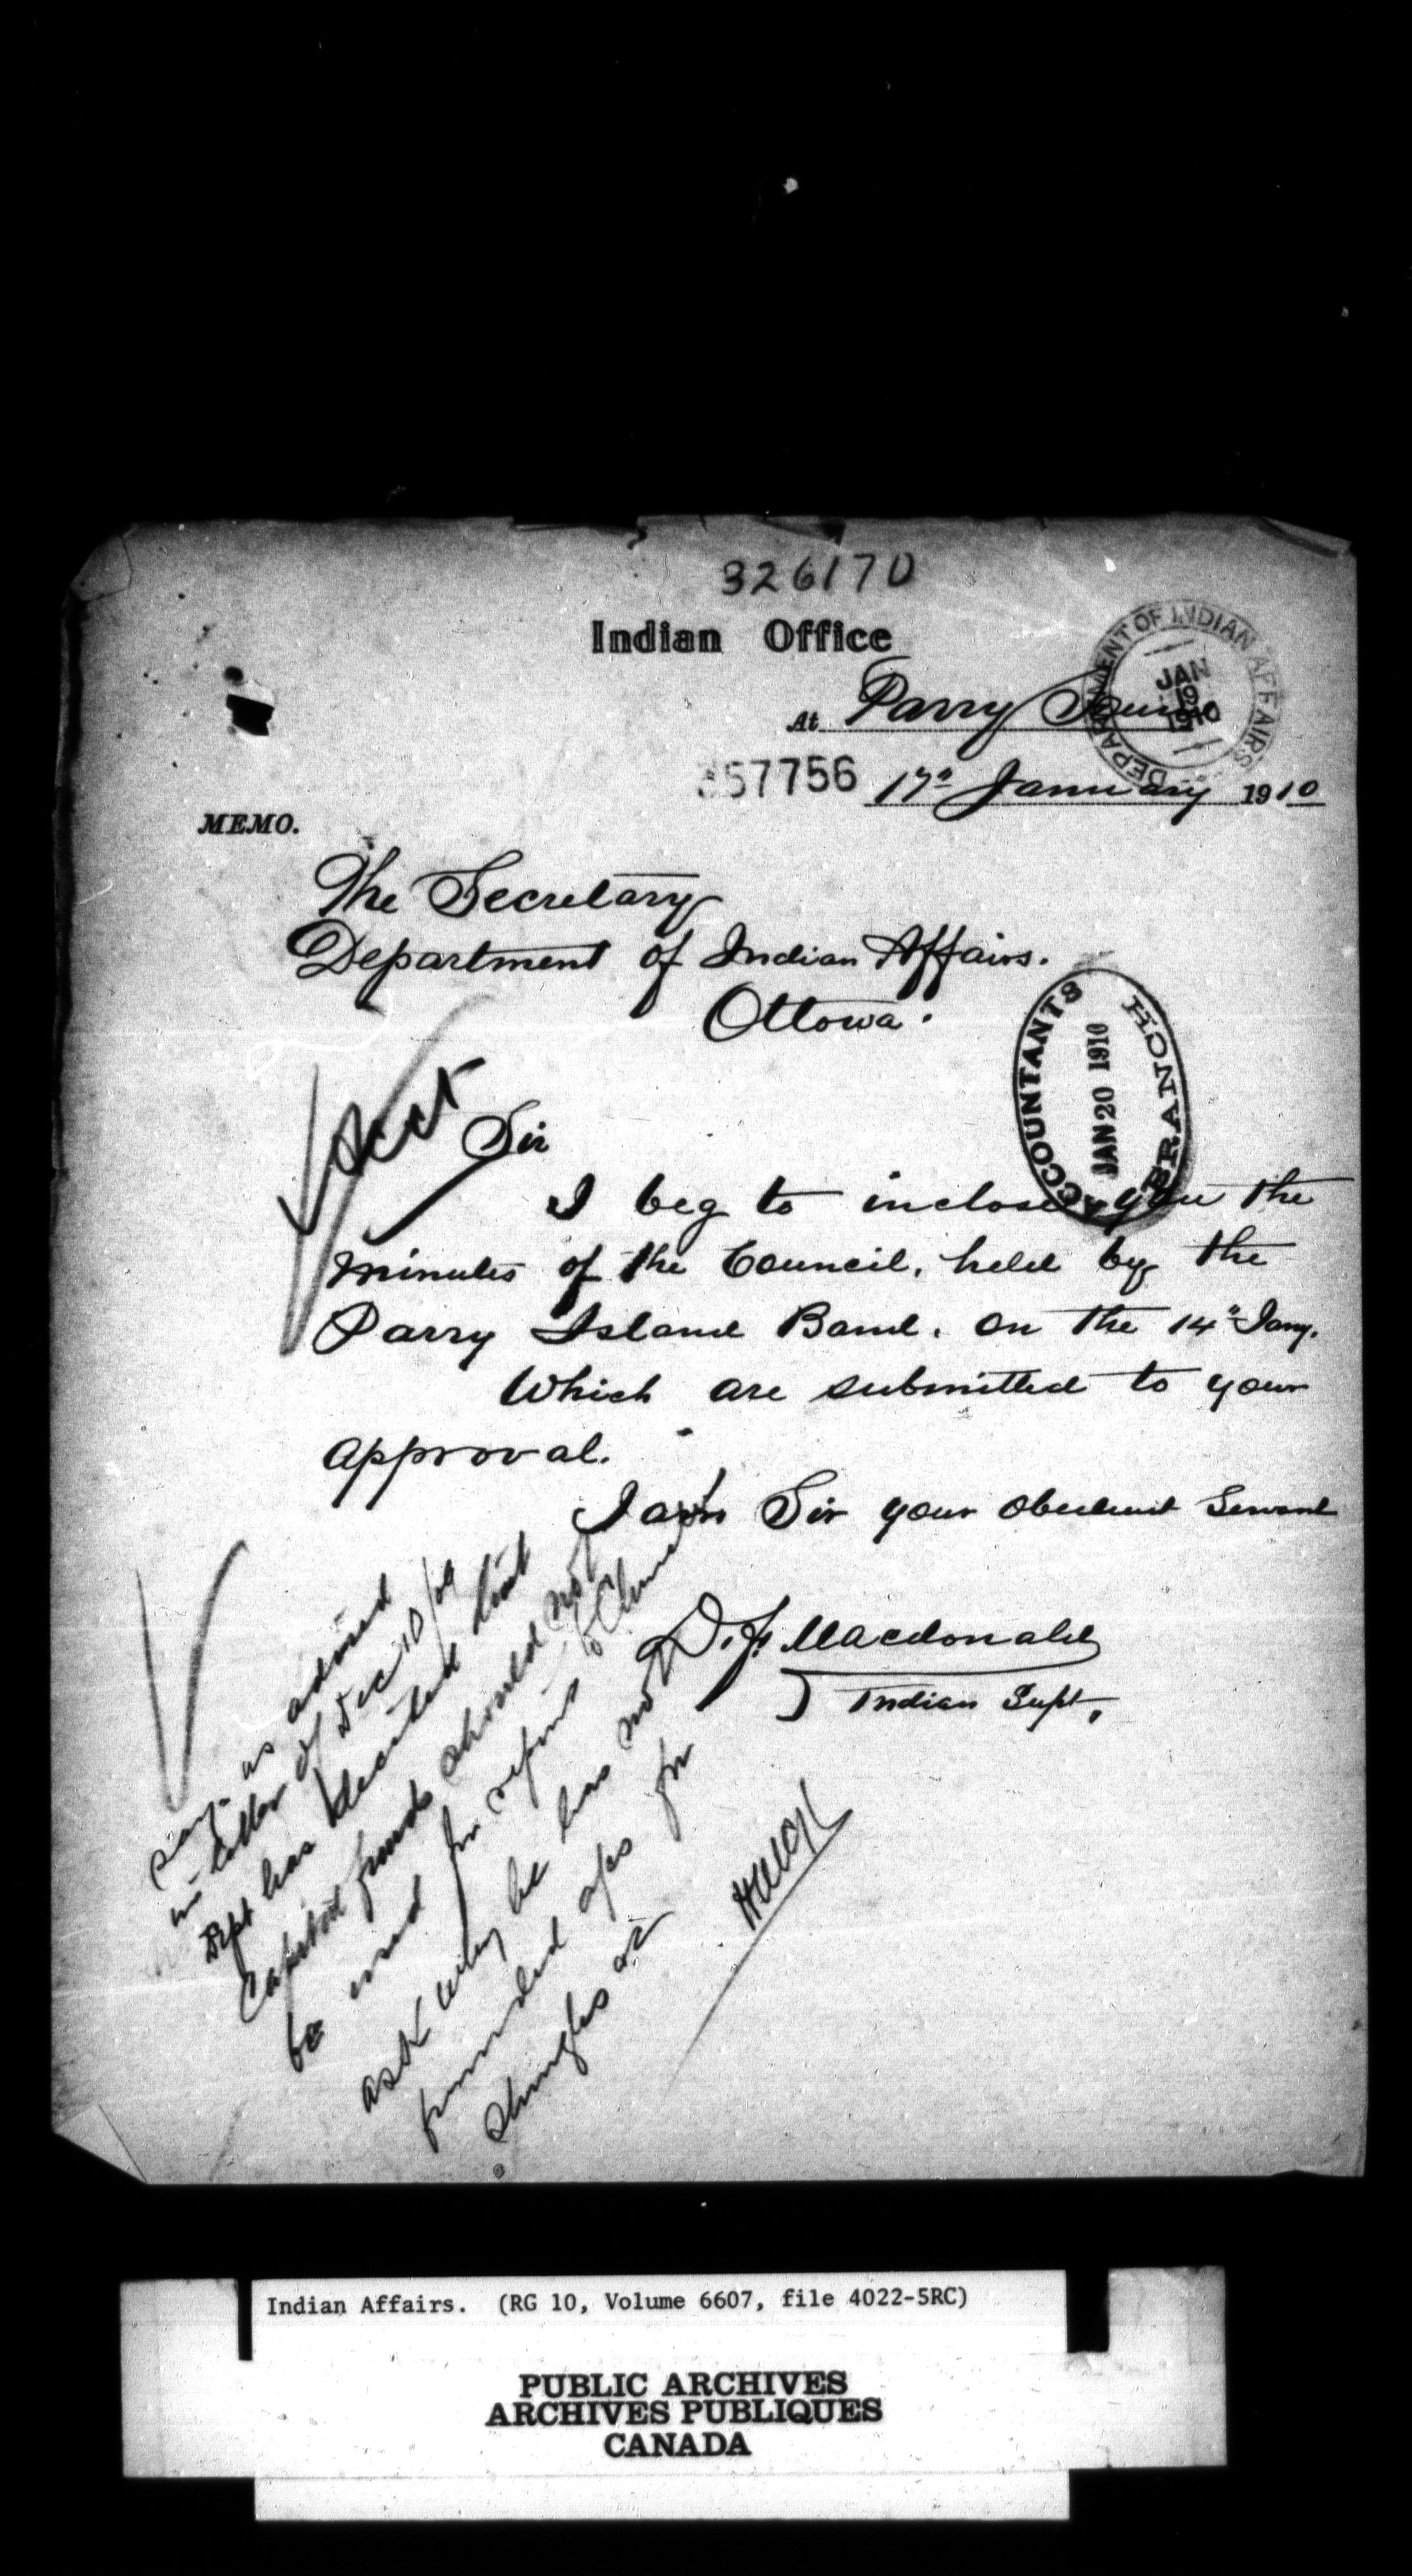 326170
Indian Office
At Parry Sound
DEPARTMENT OF INDIAN AFFAIRS
JAN
19
1910
357756 17" January 1910
MEMO.
The Secretary
Department of Indian Affairs.
Ottowa.
ACCOUNTANTS BRANCH
JAN 20 1910
Acct
Sir
I beg to inclose you the
minutes of the Council, held by the
Parry Island Band. On the 14" Jany.
Which are submitted to your
approval.
I am Sir your Obedient Servant
D. F. Macdonald
Indian Supt.
say - as advised
in letter of Dec 10/09
Dept has decided that
Capital funds should not
be used for repairs to Church
ask why he has not
forwarded a/cs for
shingles
Indian Affairs. (RG 10, Volume 6607, file 4022-5RC)
PUBLIC ARCHIVES
ARCHIVES PUBLIQUES
CANADA